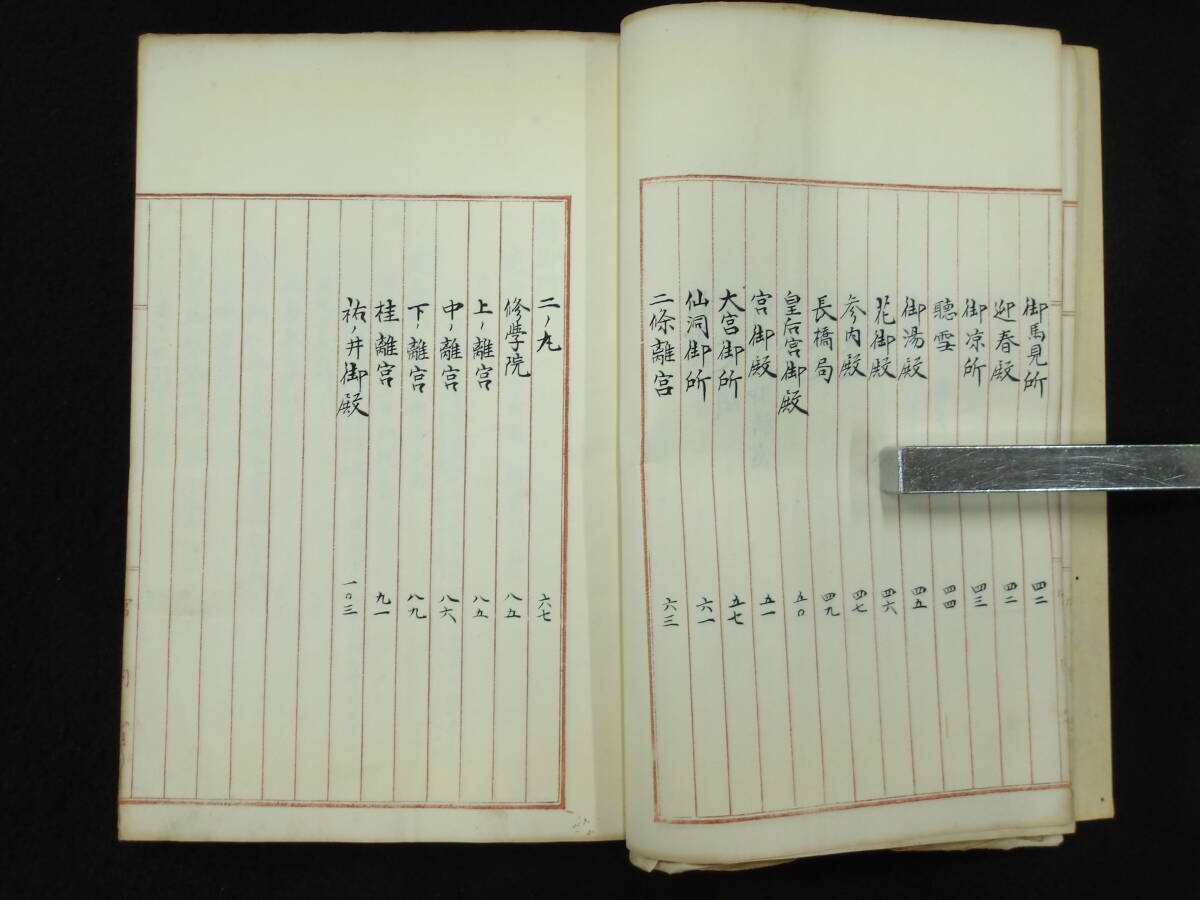 御馬見所 四二
迎春殿 四二
御凉所 四三
聽雪 四四
御湯殿 四五
花御殿 四六
参内殿 四七
長橋局 四九
皇后宮御殿 五〇
宮御殿 五一
大宮御所 五七
仙洞御所 六一
二條離宮 六三
二ノ丸 六七
修學院 八五
上ノ離宮 八五
中ノ離宮 八六
下ノ離宮 八九
桂離宮 九一
祐ノ井御殿 一〇三